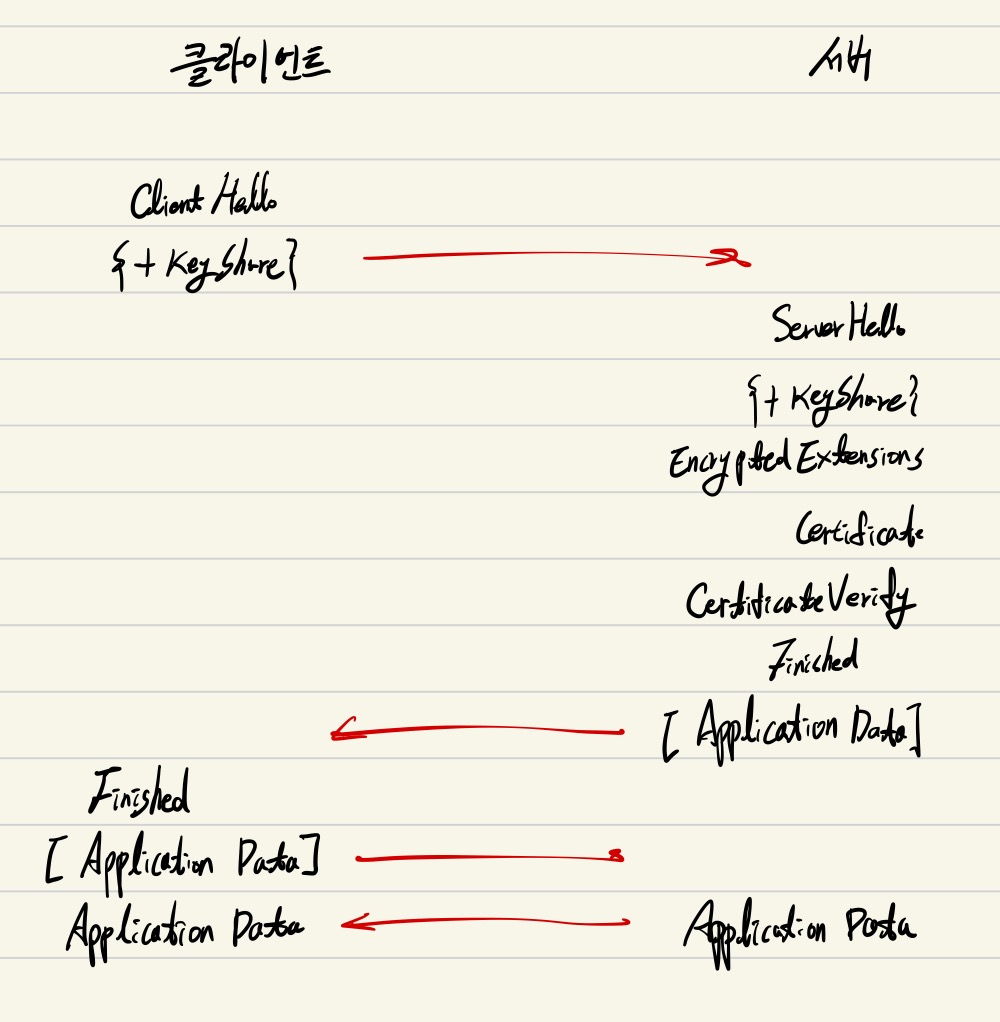 클라이언트 서버
Client Hello
{+ Key Share}
Server Hello
{+ KeyShare}
Encrypted Extensions
Certificate
CertificateVerify
Finished
[ Application Data]
Finished
[ Application Data]
Application Data Application Data